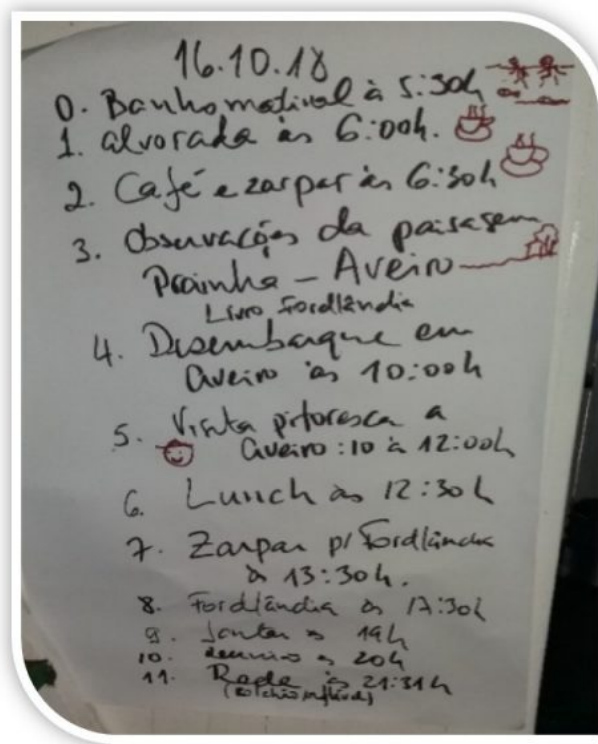 16.10.18
0. Banho matinal à 5:30h
1. alvorada às 6:00h.
2. Café e zarpar às 6:30h
3. Observações da paisagem
Prainha - Aveiro
Livro Fordlândia
4. Desembarque em
Aveiro às 10:00h
5. Visita pitoresca a
Aveiro: 10 à 12:00h
6. Lunch às 12:30h
7. Zarpar p/ Fordlândia
à 13:30h.
8. Fordlândia às 17:30h
9. Jantar às 19h
10. reunião às 20h
11. Rede às 21:31h
(colchão inflável)